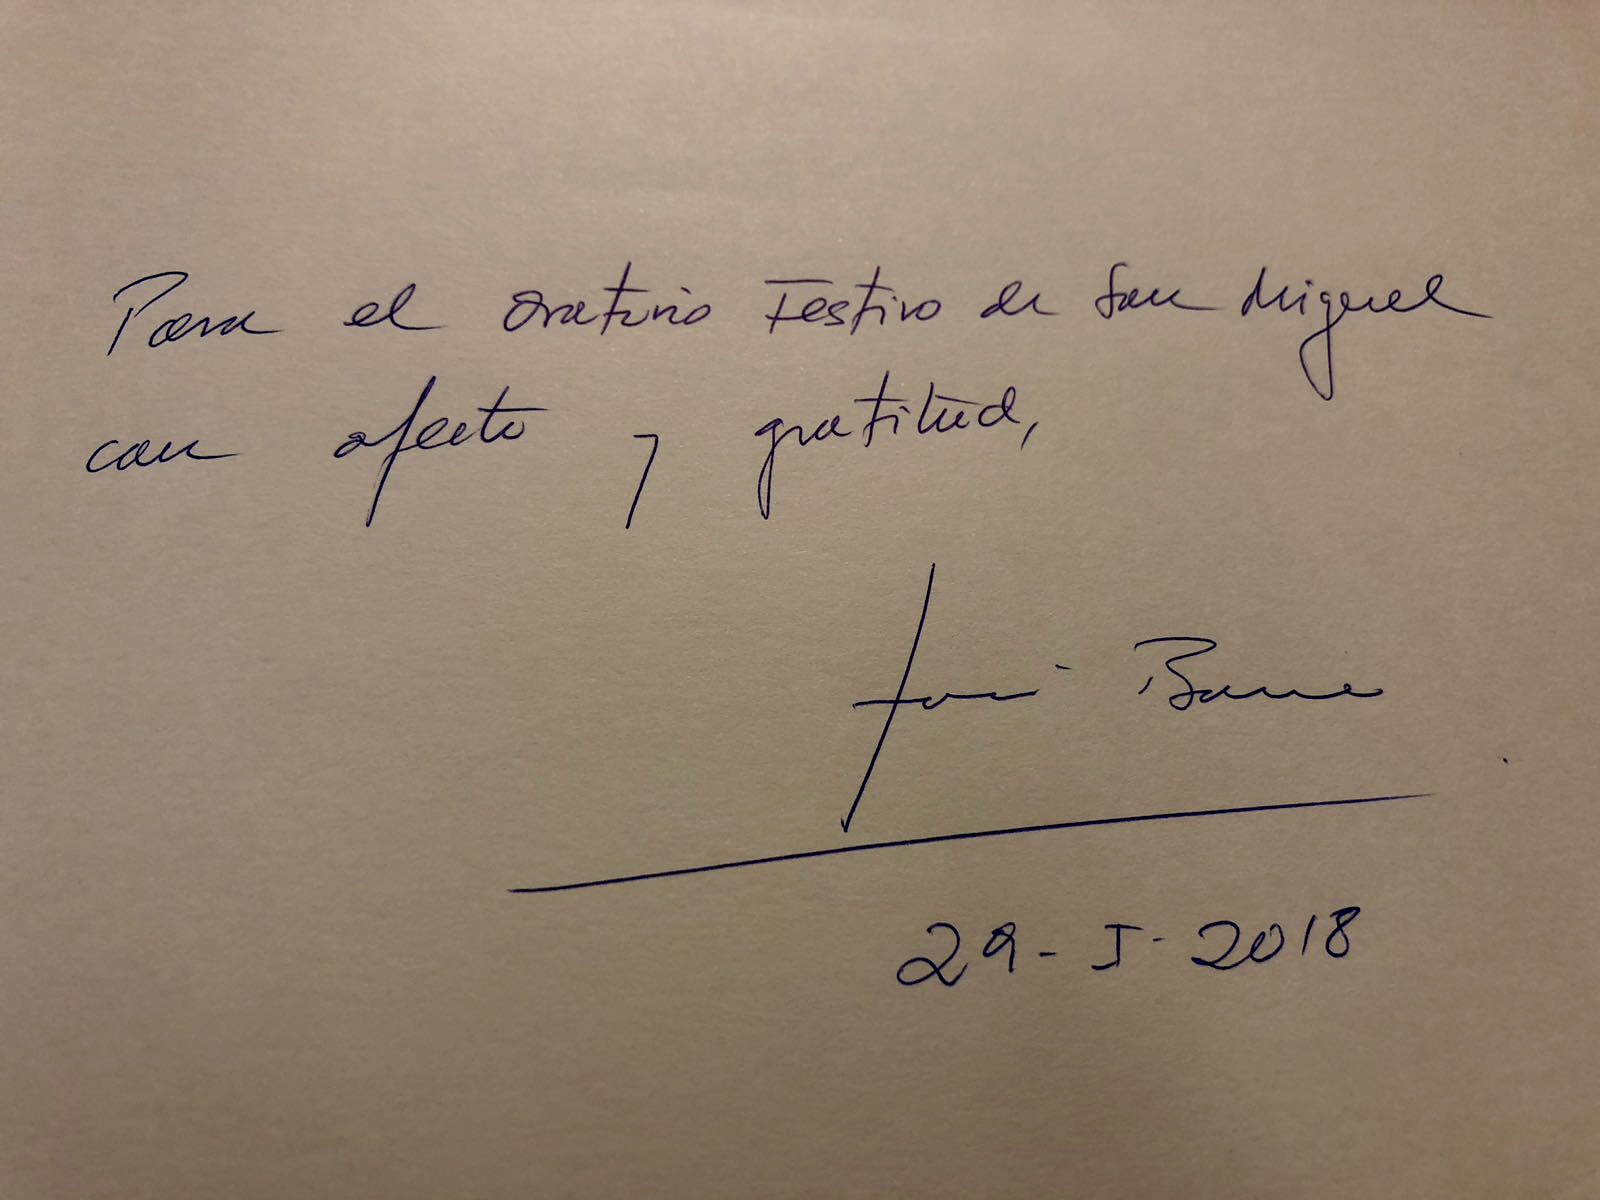 Para el Oratorio Festivo de San Miguel
con afecto y gratitud,
José
29-I-2018